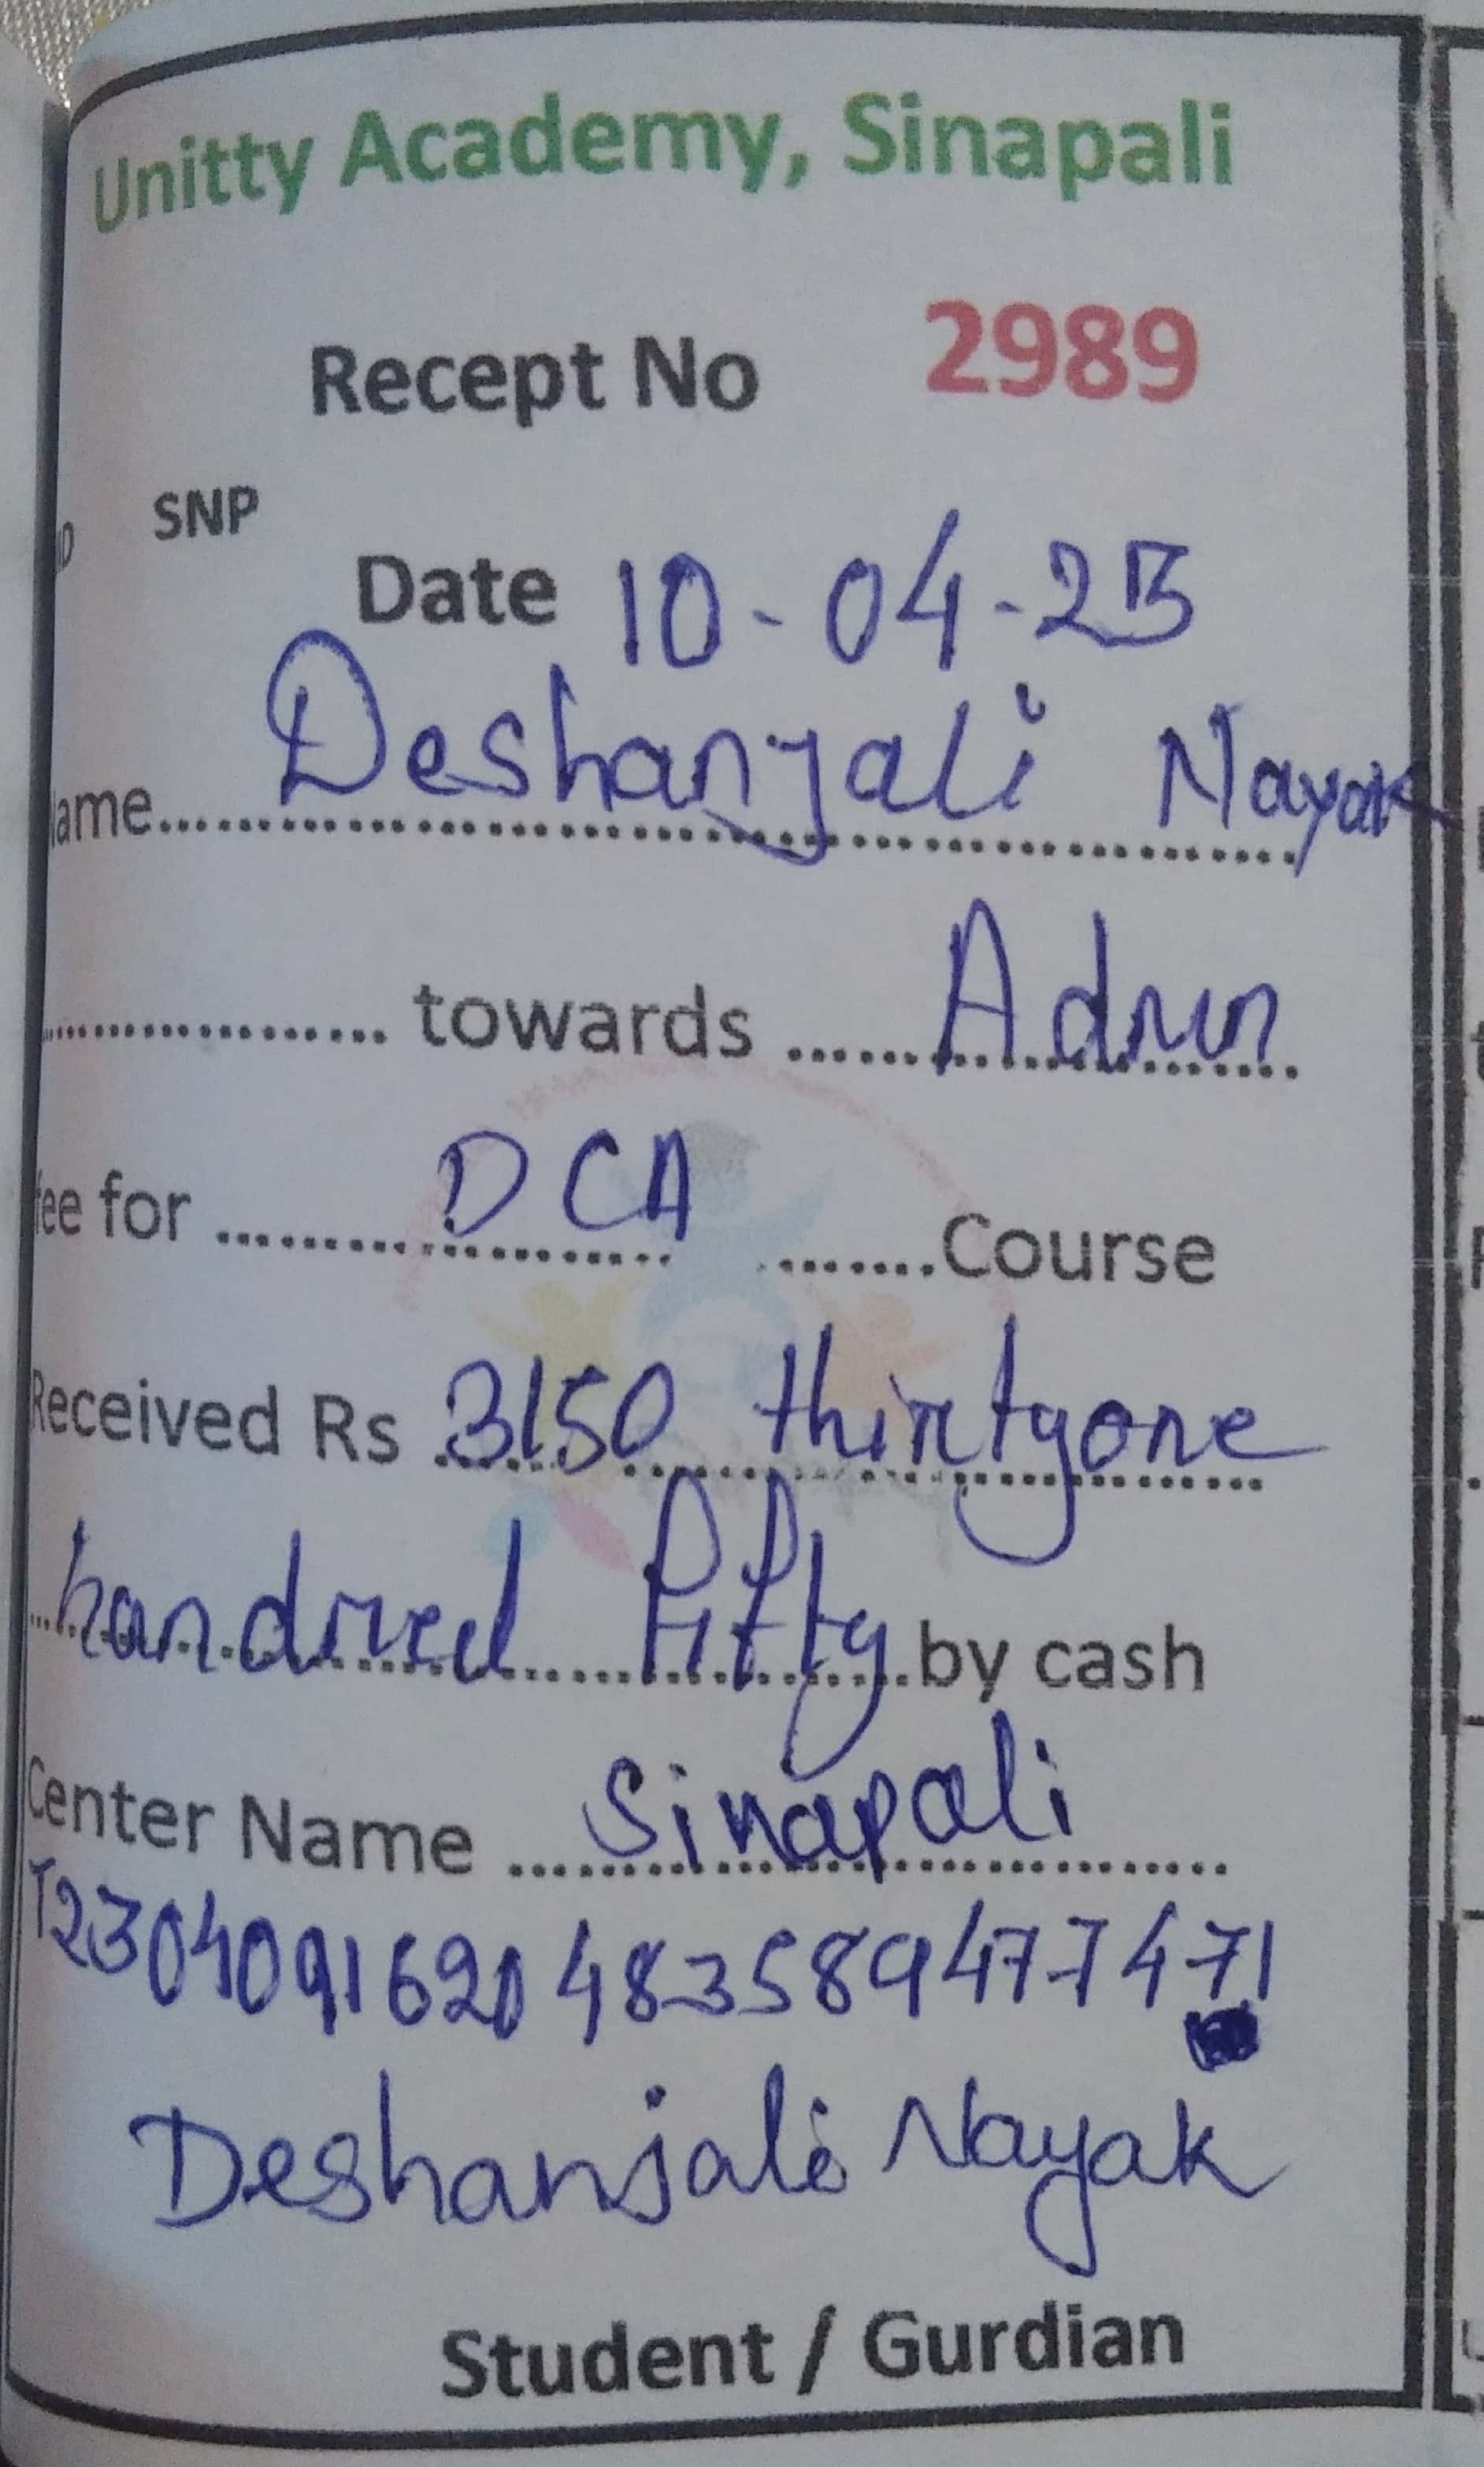 Unitty Academy, Sinapali
Recept No 2989
SNP
Date 10-04-23
ame........ Deshanjali Nayak
........ towards ...... Admn
fee for ........ DCA ........Course
Received Rs 3150 thirtyone
handred Fifty by cash
Center Name ...Sinapali...
T2304091620483589477471
Deshanjali Nayak
Student / Gurdian